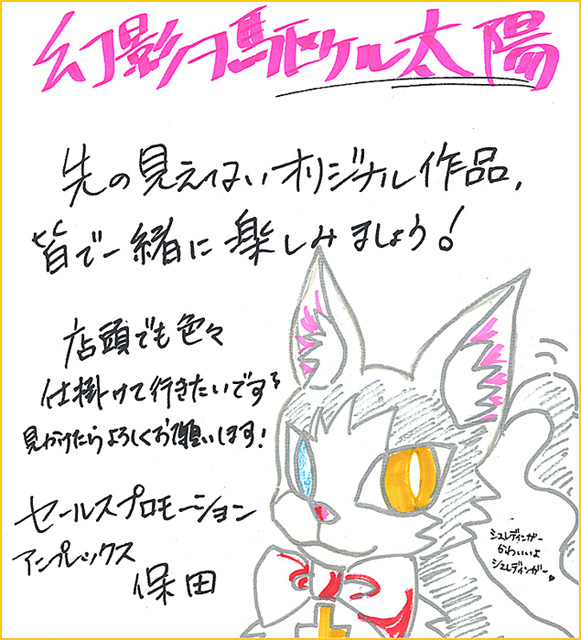 幻影ヲ駆ケル太陽
先の見えないオリジナル作品、
皆で一緒に楽しみましょう!
店頭でも色々
仕掛けて行きたいです
見かけたらよろしくお願いします!
セールスプロモーション
アニプレックス
保田
シュレディンガー
かわいいよ
シュレディンガー♥